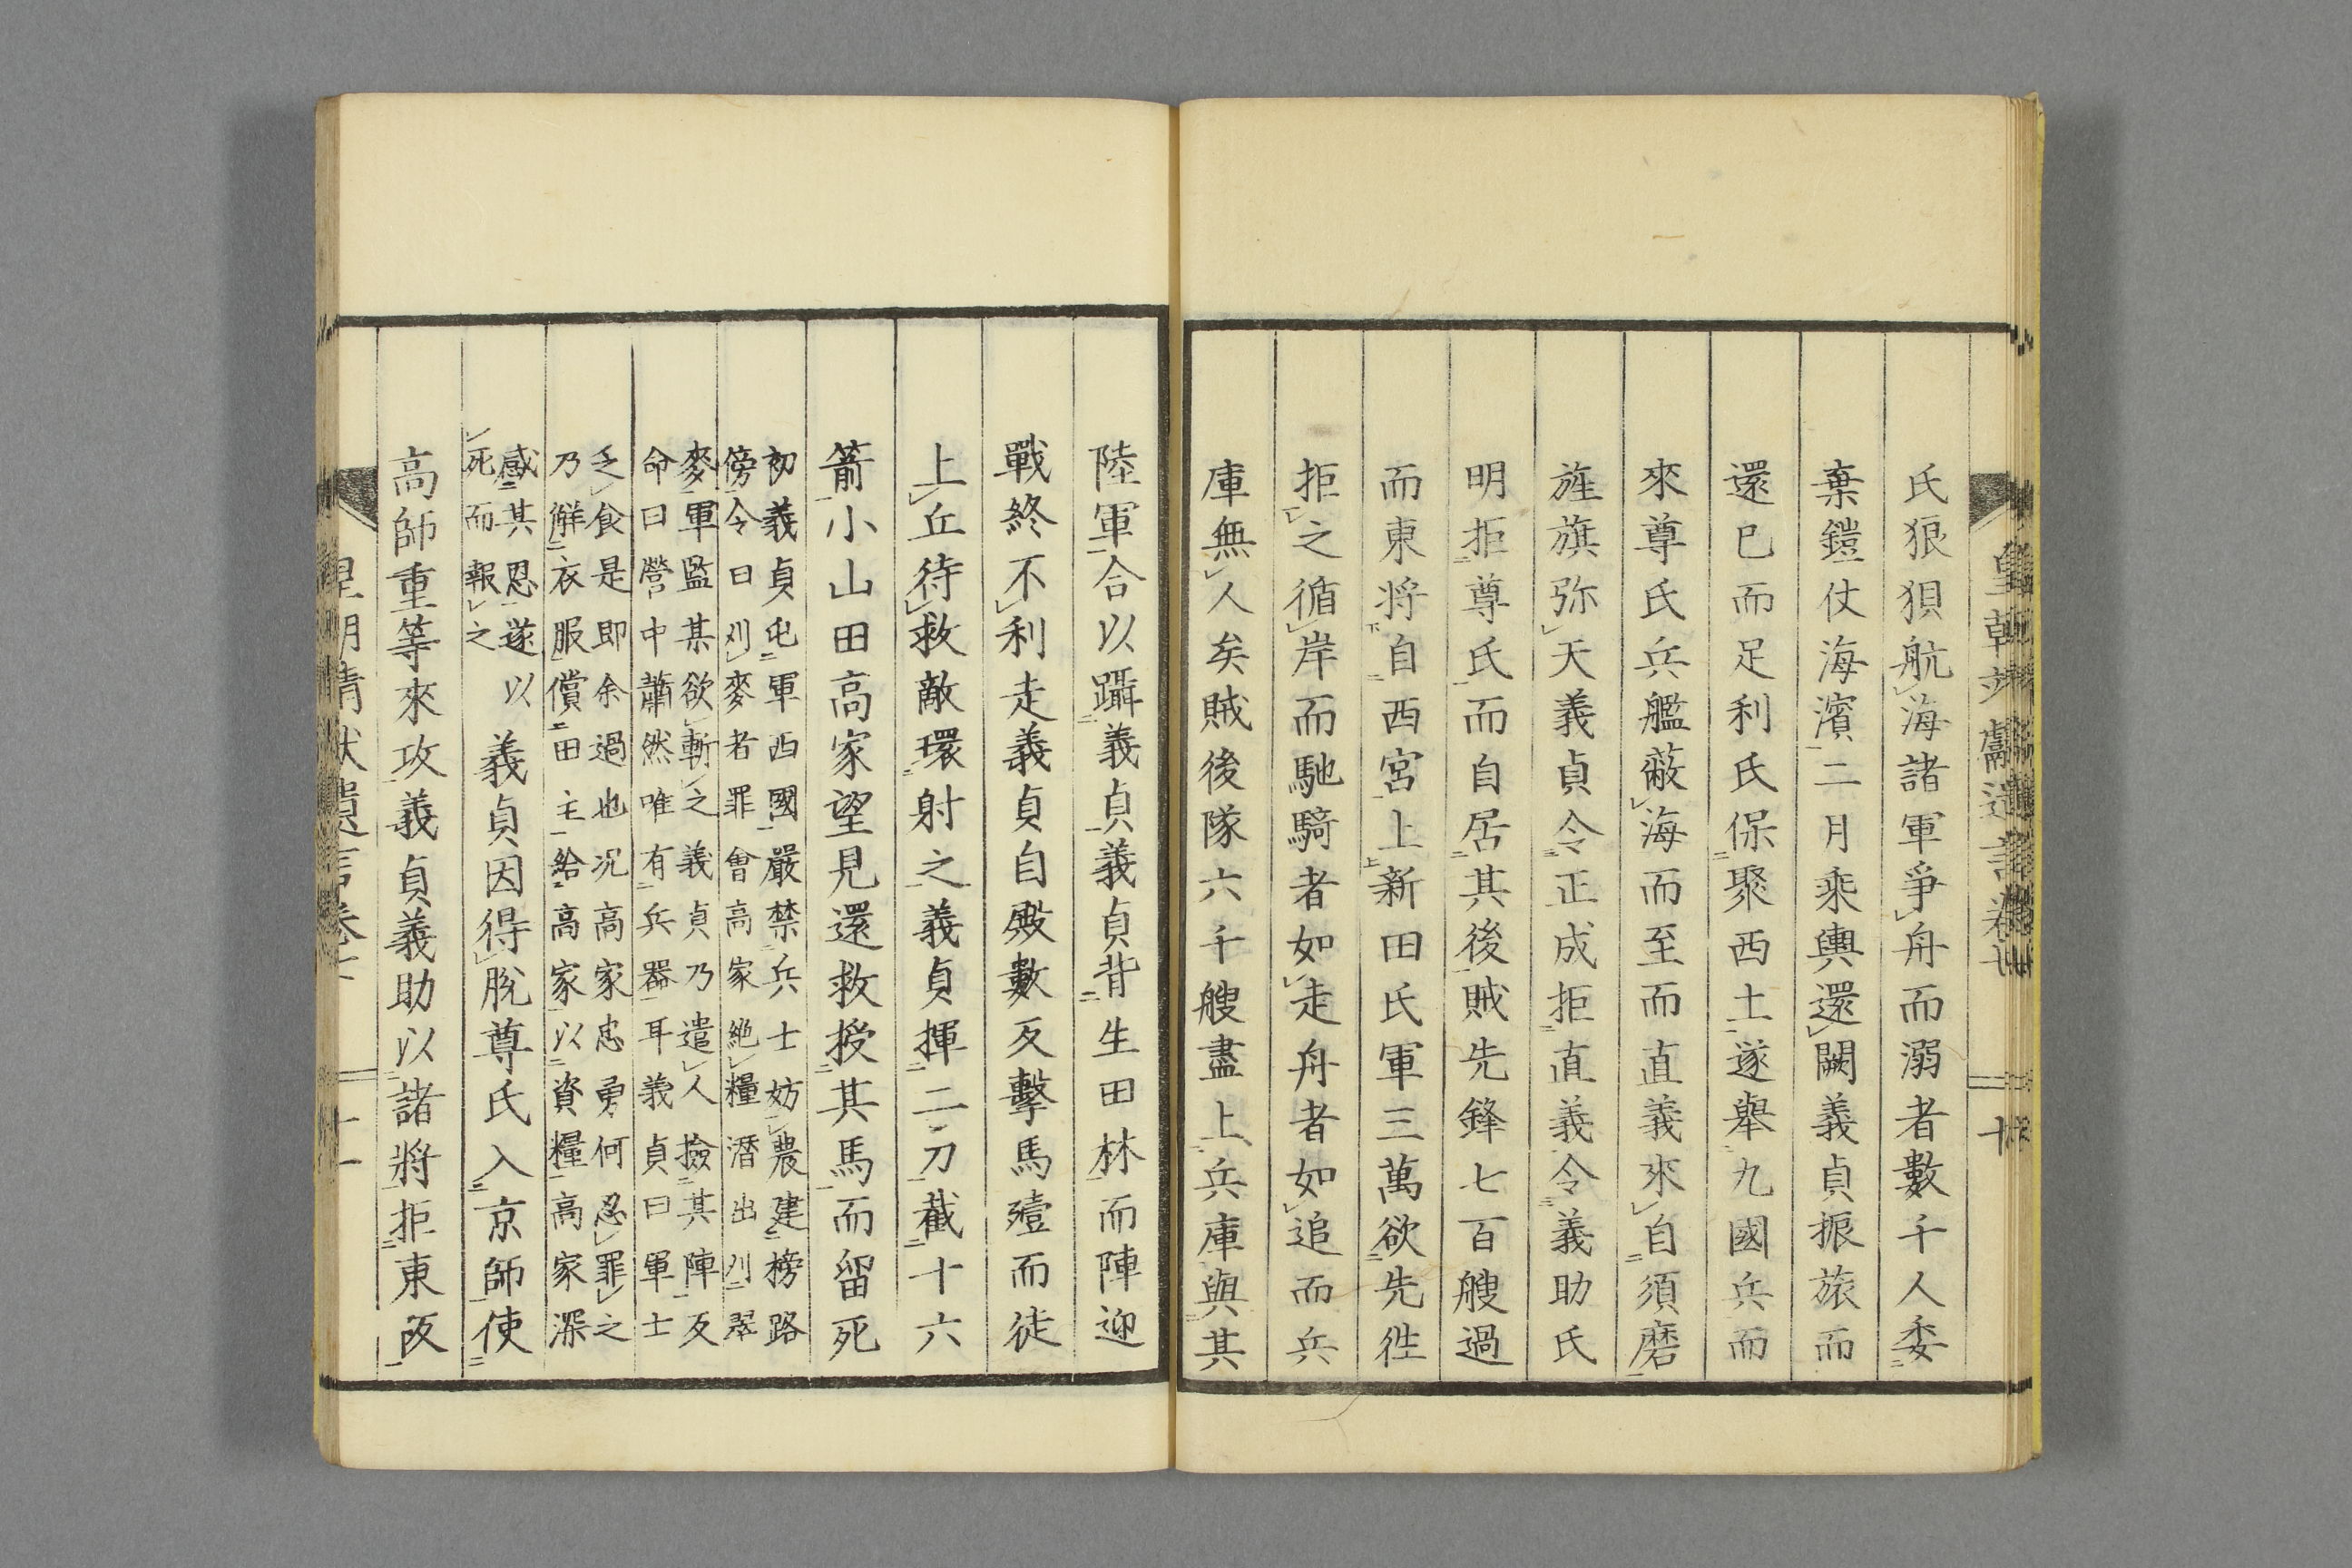 氏狼狽航海諸軍爭舟而溺者數千人委
棄鎧仗海濱二月乘輿還闕義貞振旅而
還已而足利氏保聚西土遂舉九國兵而
來尊氏兵艦蔽海而至而直義來自須磨
旌旗弥天義貞令正成拒直義令義助氏
明拒尊氏而自居其後賊先鋒七百艘過
而東將自西宮上新田氏軍三萬欲先徃
拒之循岸而馳騎者如走舟者如追而兵
庫無人矣賊後隊六千艘盡上兵庫與其
陸軍合以躡義貞義貞背生田林而陣迎
戰終不利走義貞自殿數反擊馬殪而徒
上丘待救敵環射之義貞揮二刀截十六
箭小山田高家望見還救授其馬而留死
初義貞屯軍西國嚴禁兵士妨農建榜路
傍令曰刈麥者罪會高家絶糧潛出刈翠
麥軍監某欲斬之義貞乃遣人撿其陣反
命曰營中蕭然唯有兵器耳義貞曰軍士
乏食是即余過也况高家忠勇何忍罪之
乃觧衣服償田主給高家以資糧高家深
感其恩遂以
死而報之
義貞因得脫尊氏入京師使
高師重等來攻義貞義助以諸將拒東阪